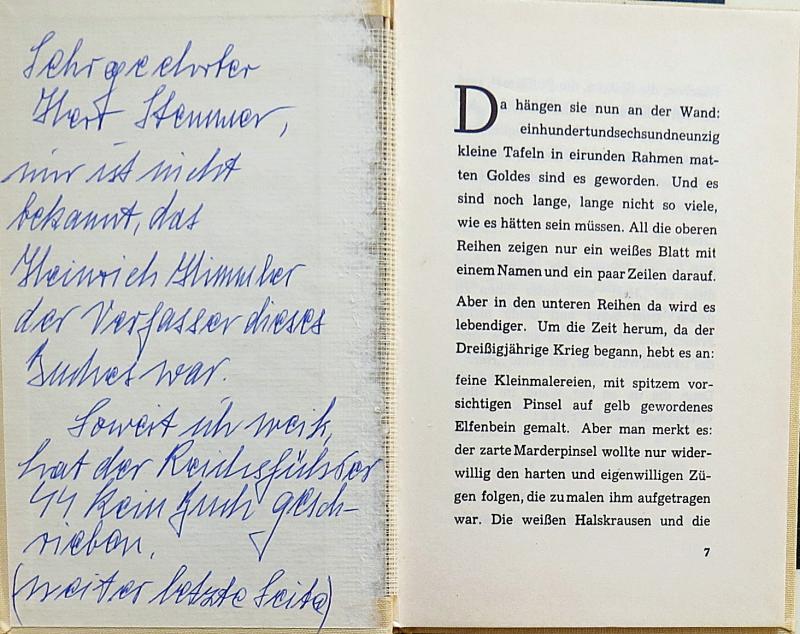 Sehr geehrter
Herr Stemmer,
mir ist nicht
bekannt, das
Heinrich Himmler
der Verfasser dieses
Buches war.
Soweit ich weiß,
hat der Reichsführer
SS kein Buch gesch-
rieben.
(weiter letzte Seite)
Da hängen sie nun an der Wand:
einhundertundsechsundneunzig
kleine Tafeln in eirunden Rahmen mat-
ten Goldes sind es geworden. Und es
sind noch lange, lange nicht so viele,
wie es hätten sein müssen. All die oberen
Reihen zeigen nur ein weißes Blatt mit
einem Namen und ein paar Zeilen darauf.
Aber in den unteren Reihen da wird es
lebendiger. Um die Zeit herum, da der
Dreißigjährige Krieg begann, hebt es an:
feine Kleinmalereien, mit spitzem vor-
sichtigen Pinsel auf gelb gewordenes
Elfenbein gemalt. Aber man merkt es:
der zarte Marderpinsel wollte nur wider-
willig den harten und eigenwilligen Zü-
gen folgen, die zu malen ihm aufgetragen
war. Die weißen Halskrausen und die
7